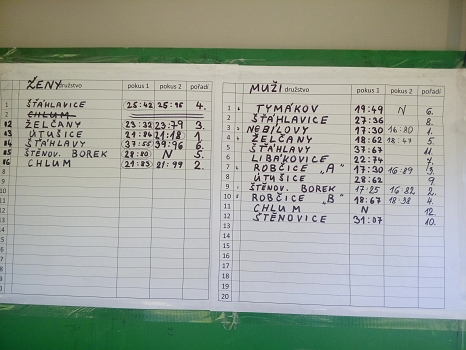 ŽENY družstvo pokus 1 pokus 2 pořadí
1 ŠŤÁHLAVICE 25:42 25:95 4.
CHLUM
02 ŽELČANY 23:32 23:79 3.
03 ÚTUŠICE 21:84 21:18 1.
04 ŠŤÁHLAVY 37:55 39:96 6.
05 ŠTĚNOV. BOREK 28:80 N 5.
06 CHLUM 21:83 21:99 2.
8
9
10
11
12
13
14
15
16
17
18
19
MUŽI družstvo pokus 1 pokus 2 pořadí
1 TYMÁKOV 19:49 N 6.
2 ŠŤÁHLAVICE 27:36 8.
3 NEBÍLOVY 17:30 16:80 1.
4 ŽELČANY 18:62 18:47 5.
5 ŠŤÁHLAVY 37:67 11.
6 LIBÁKOVICE 22:74 7.
7 ROBČICE „A" 17:30 16:89 3.
8 ÚTUŠICE 28:62 9.
9 ŠTĚNOV. BOREK 17:25 16:82 2.
10 ROBČICE „B" 18:67 18:38 4.
11 CHLUM N 12.
12 ŠTĚNOVICE 31:07 10.
13
14
15
16
17
18
19
20